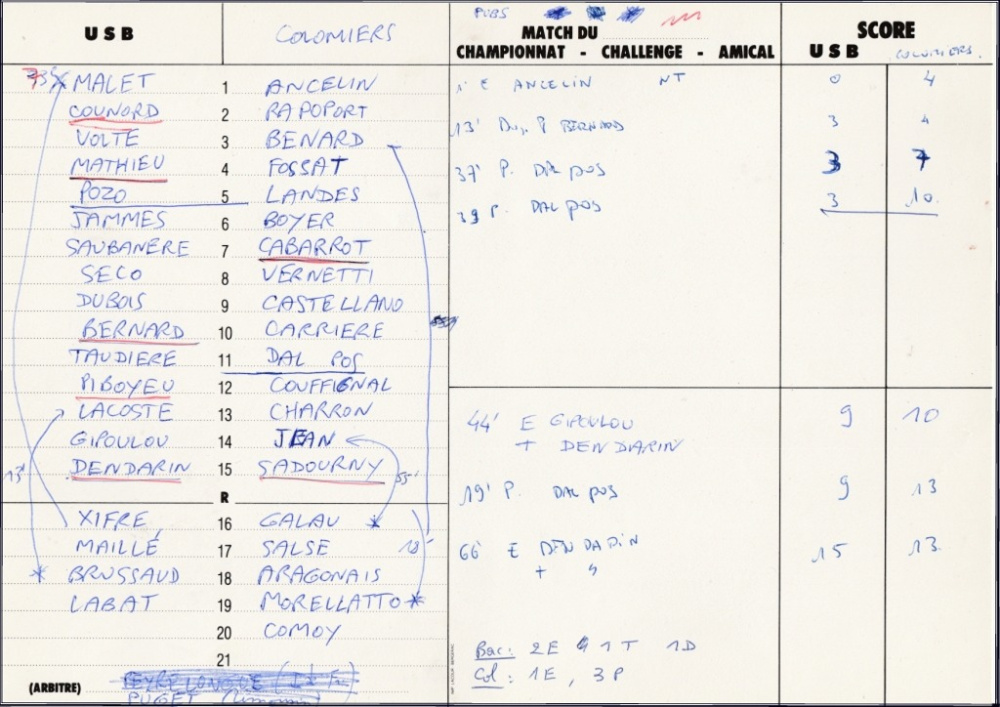 USB COLOMIERS
MALET 1 ANCELIN
COUNORD 2 RAPOPORT
VOLTE 3 BENARD
MATHIEU 4 FOSSAT
POZO 5 LANDES
JAMMES 6 BOYER
SAUBANERE 7 CABARROT
SECO 8 VERNETTI
DUBOIS 9 CASTELLANO
BERNARD 10 CARRIERE
TAUDIERE 11 DAL POS
PIBOYEU 12 COUFFIGNAL
LACOSTE 13 CHARRON
GIPOULOU 14 JEAN
13' DENDARIN 15 SADOURNY 55'
R
XIFRE 16 GALAU
MAILLÉ 17 SALSE 18'
BRUSSAUD 18 ARAGONAIS
LABAT 19 MORELLATTO
20 COMOY
21
(ARBITRE) PEYRELONGUE
PUGET (Limousin)
PUBS
MATCH DU
CHAMPIONNAT - CHALLENGE - AMICAL
SCORE
USB COLOMIERS
1' E ANCELIN NT 0 4
13' Dup. P BERNARD 3 4
37' P. DAL POS 3 7
39 P. DAL POS 3 10
44' E GIPOULOU 9 10
+ DENDARIN
19' P. DAL POS 9 13
66' E DENDARIN 15 13
+ "
Bac: 2E 1T 1D
Col: 1E, 3P